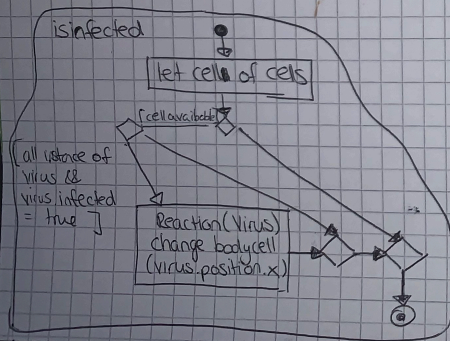 isinfected
let cell of cels
[cellavailable]
[all istance of
virus &&
virus infected
= true ]
Reaction(Virus)
change bodycell
(virus.position.x)